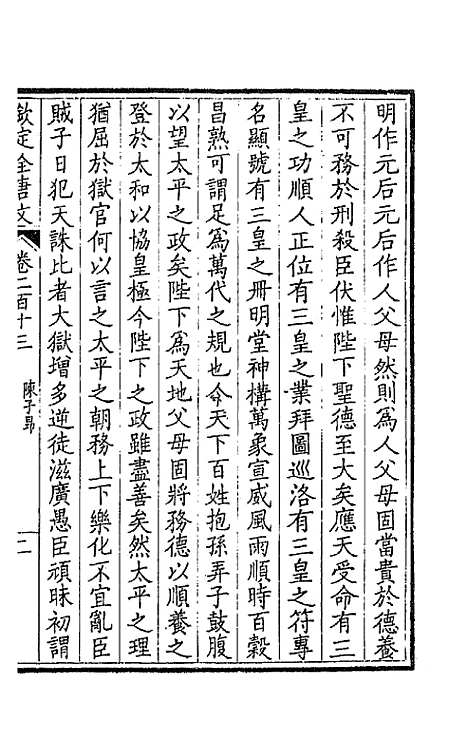 明作元后元后作人父母然則爲人父母固當貴於德養
不可務於刑殺臣伏惟陛下聖德至大矣應天受命有三
皇之功順人正位有三皇之業拜圖巡洛有三皇之符專
名顯號有三皇之冊明堂神構萬象宣威風雨順時百穀
昌熟可謂足爲萬代之規也今天下百姓抱孫弄子鼓腹
以望太平之政矣陛下爲天地父母固將務德以順養之
登於太和以協皇極今陛下之政雖盡善矣然太平之理
猶屈於獄官何以言之太平之朝務上下樂化不宜亂臣
賊子日犯天誅比者大獄增多逆徒滋廣愚臣頑昧初謂
欽定全唐文 卷二百十三 陳子昂 二